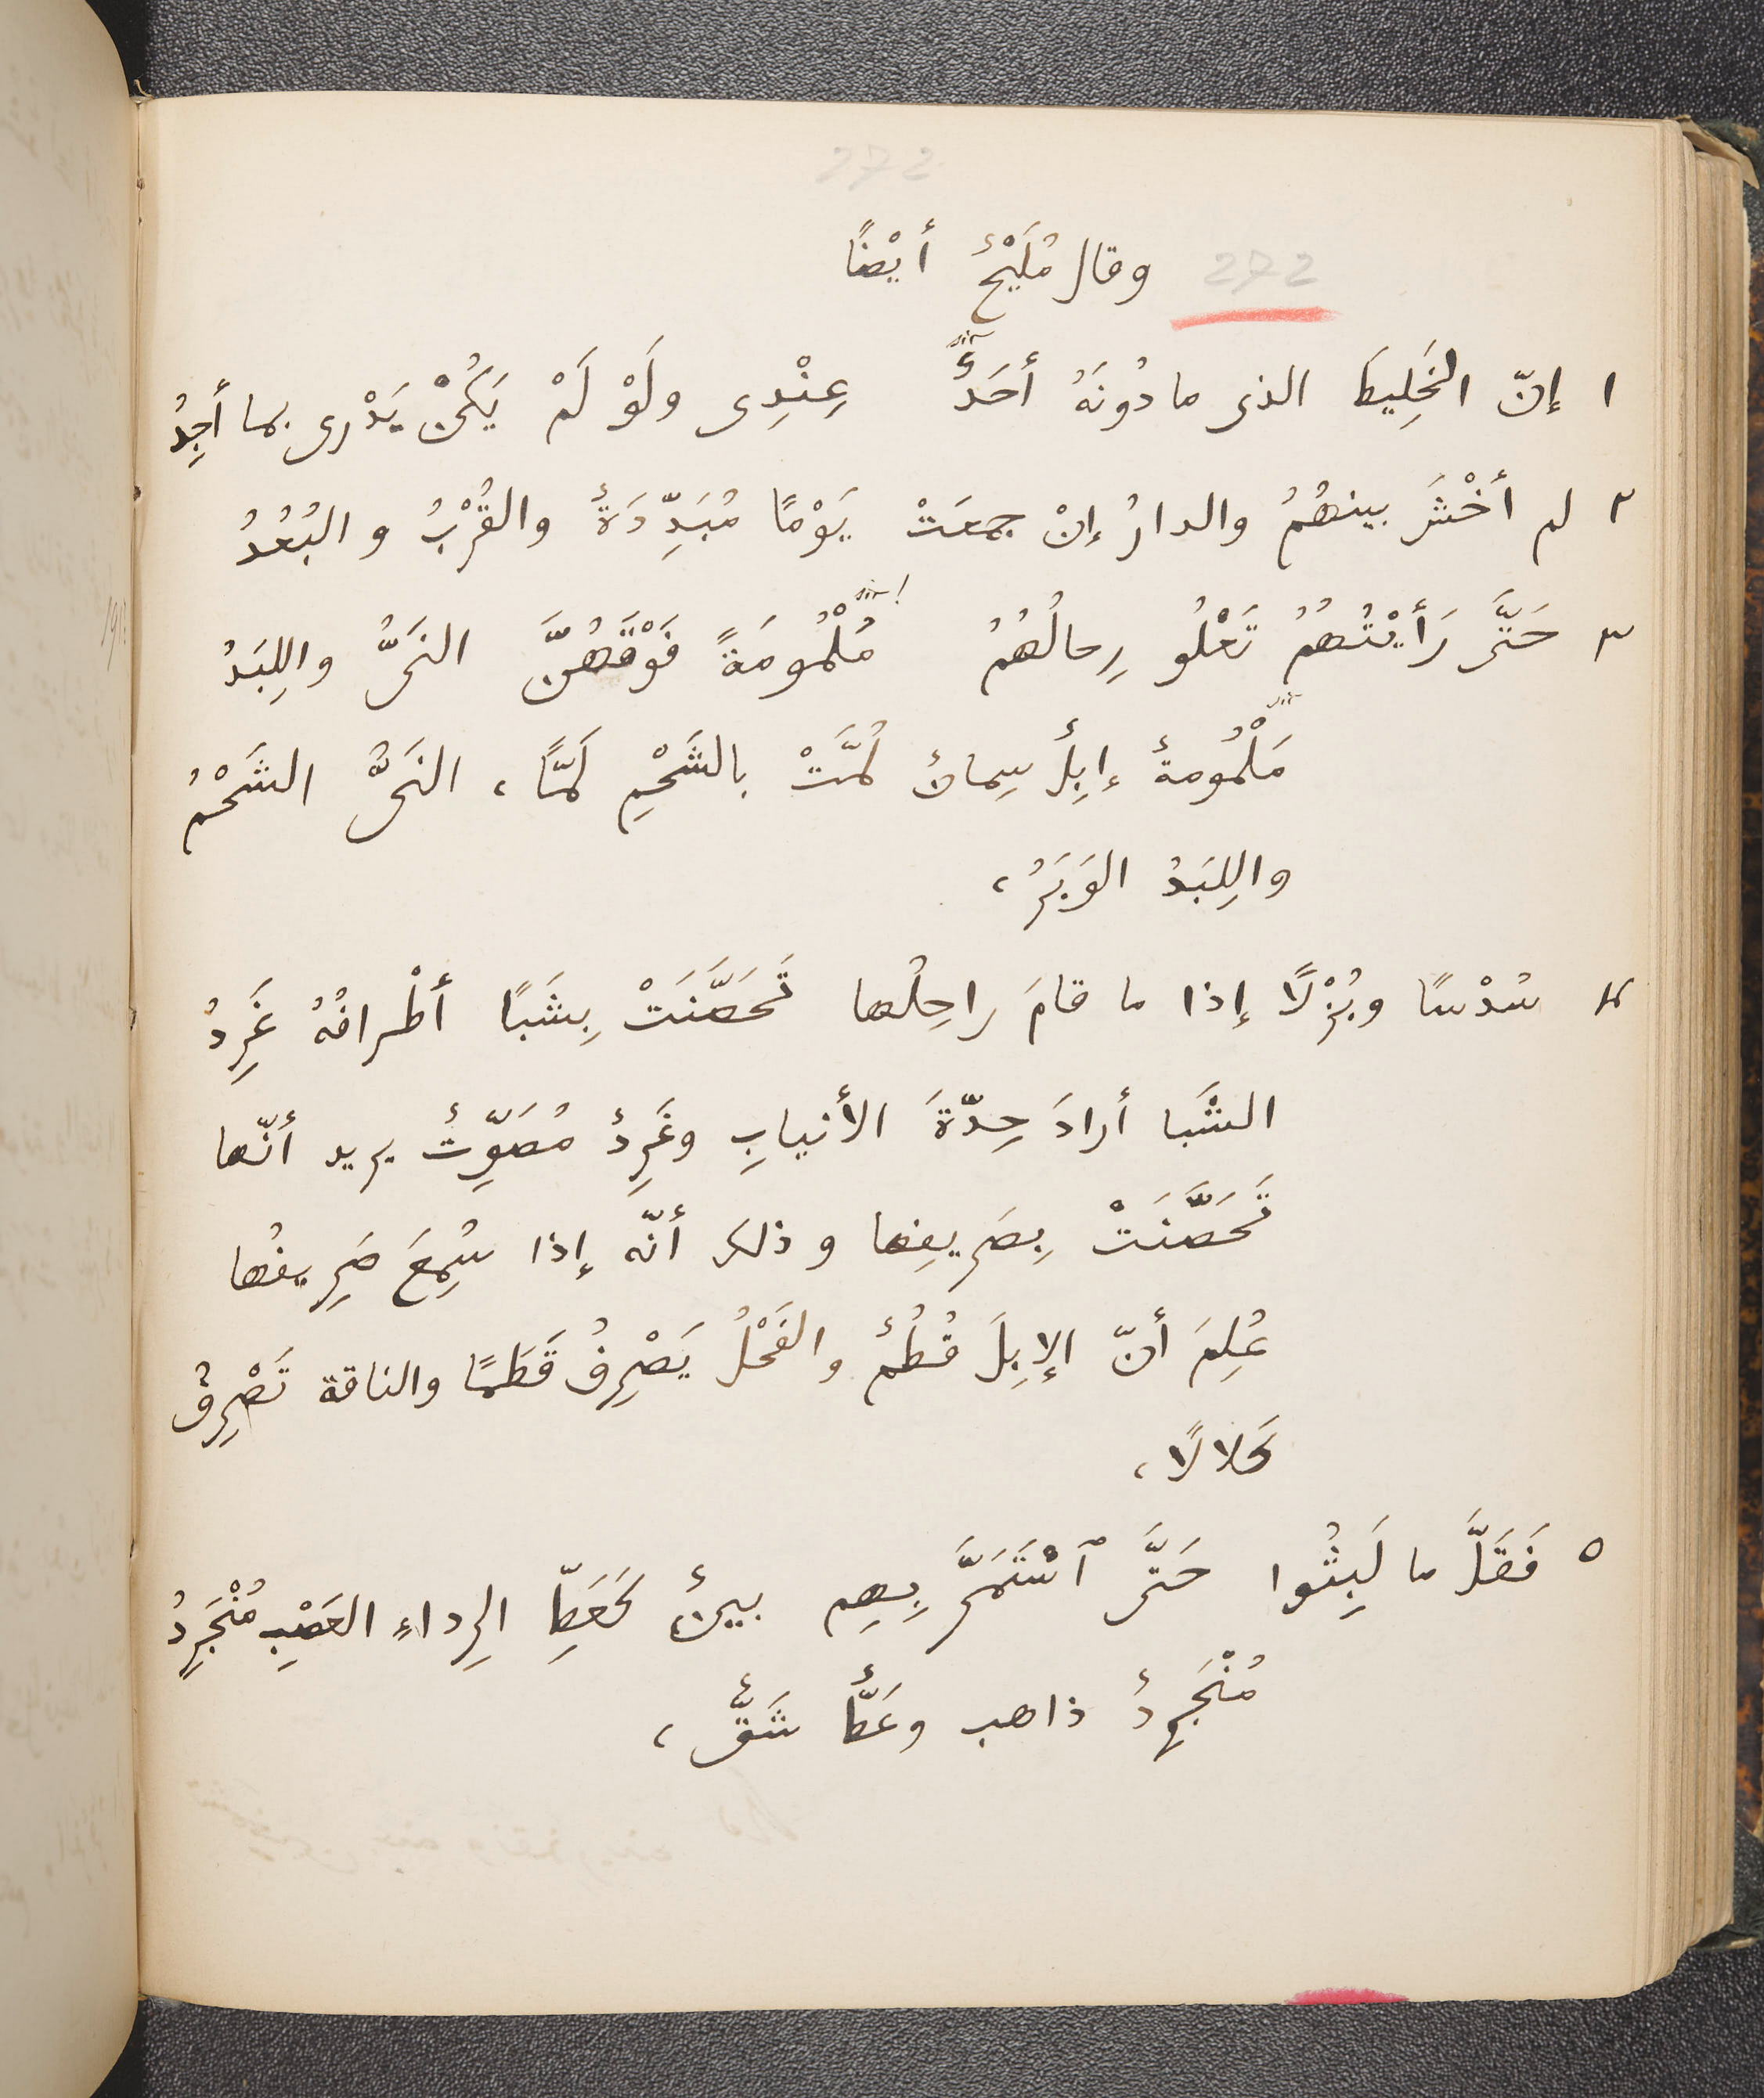 272
272 وقال مُلَيْحٌ أيْضًا
١ إنّ الخَلِيطَ الذى ما دُونَهُ أحَدٌ عِنْدِى ولَوْ لَمْ يَكُنْ يَدْرى بما أجِدُ
٢ لم أخْشَ بينهُمُ والدارُ إنْ جمعَتْ يَوْمًا مُبَدِّدَةٌ والقُرْبُ والبُعُدُ
٣ حَتَّى رَأيْتُهُمُ تَعْلُو رِحالُهُمُ مَلْمُومَةً فَوْقَهُنَّ النَىُّ واللِبَدُ
مَلْمُومةٌ إبِلٌ سِمانٌ لُمَّتْ بالشَحْمِ لَمًّا، النَىُّ الشَحْمُ
واللِبَدُ الوَبَرُ،
٤ سُدْسًا وبُزْلًا إذا ما قامَ راحِلُها تَحَصَّنَتْ بِشَبًا أطْرافُهُ غَرِدُ
الشَبا أرادَ حِدّةَ الأنيابِ وغَرِدٌ مُصَوِّتٌ يريد أنّها
تَحَصَّنَتْ بِصَريفِها وذلك أنّه إذا سُمِعَ صَرِيفُها
عُلِمَ أنّ الإبِلَ قُطُمٌ والفَحْلُ يَصْرِفُ قَطَمًا والناقة تَصْرِفُ
كَلالًا،
٥ فَقَلَّ ما لَبِثُوا حَتَّى ٱسْتَمَرَّ بِهِم بينٌ كَعَطِّ الرِداءِ العَصْبِ مُنْجَرِدُ
مُنْجَرِدٌ ذاهب وعَطٌّ شَقٌّ،